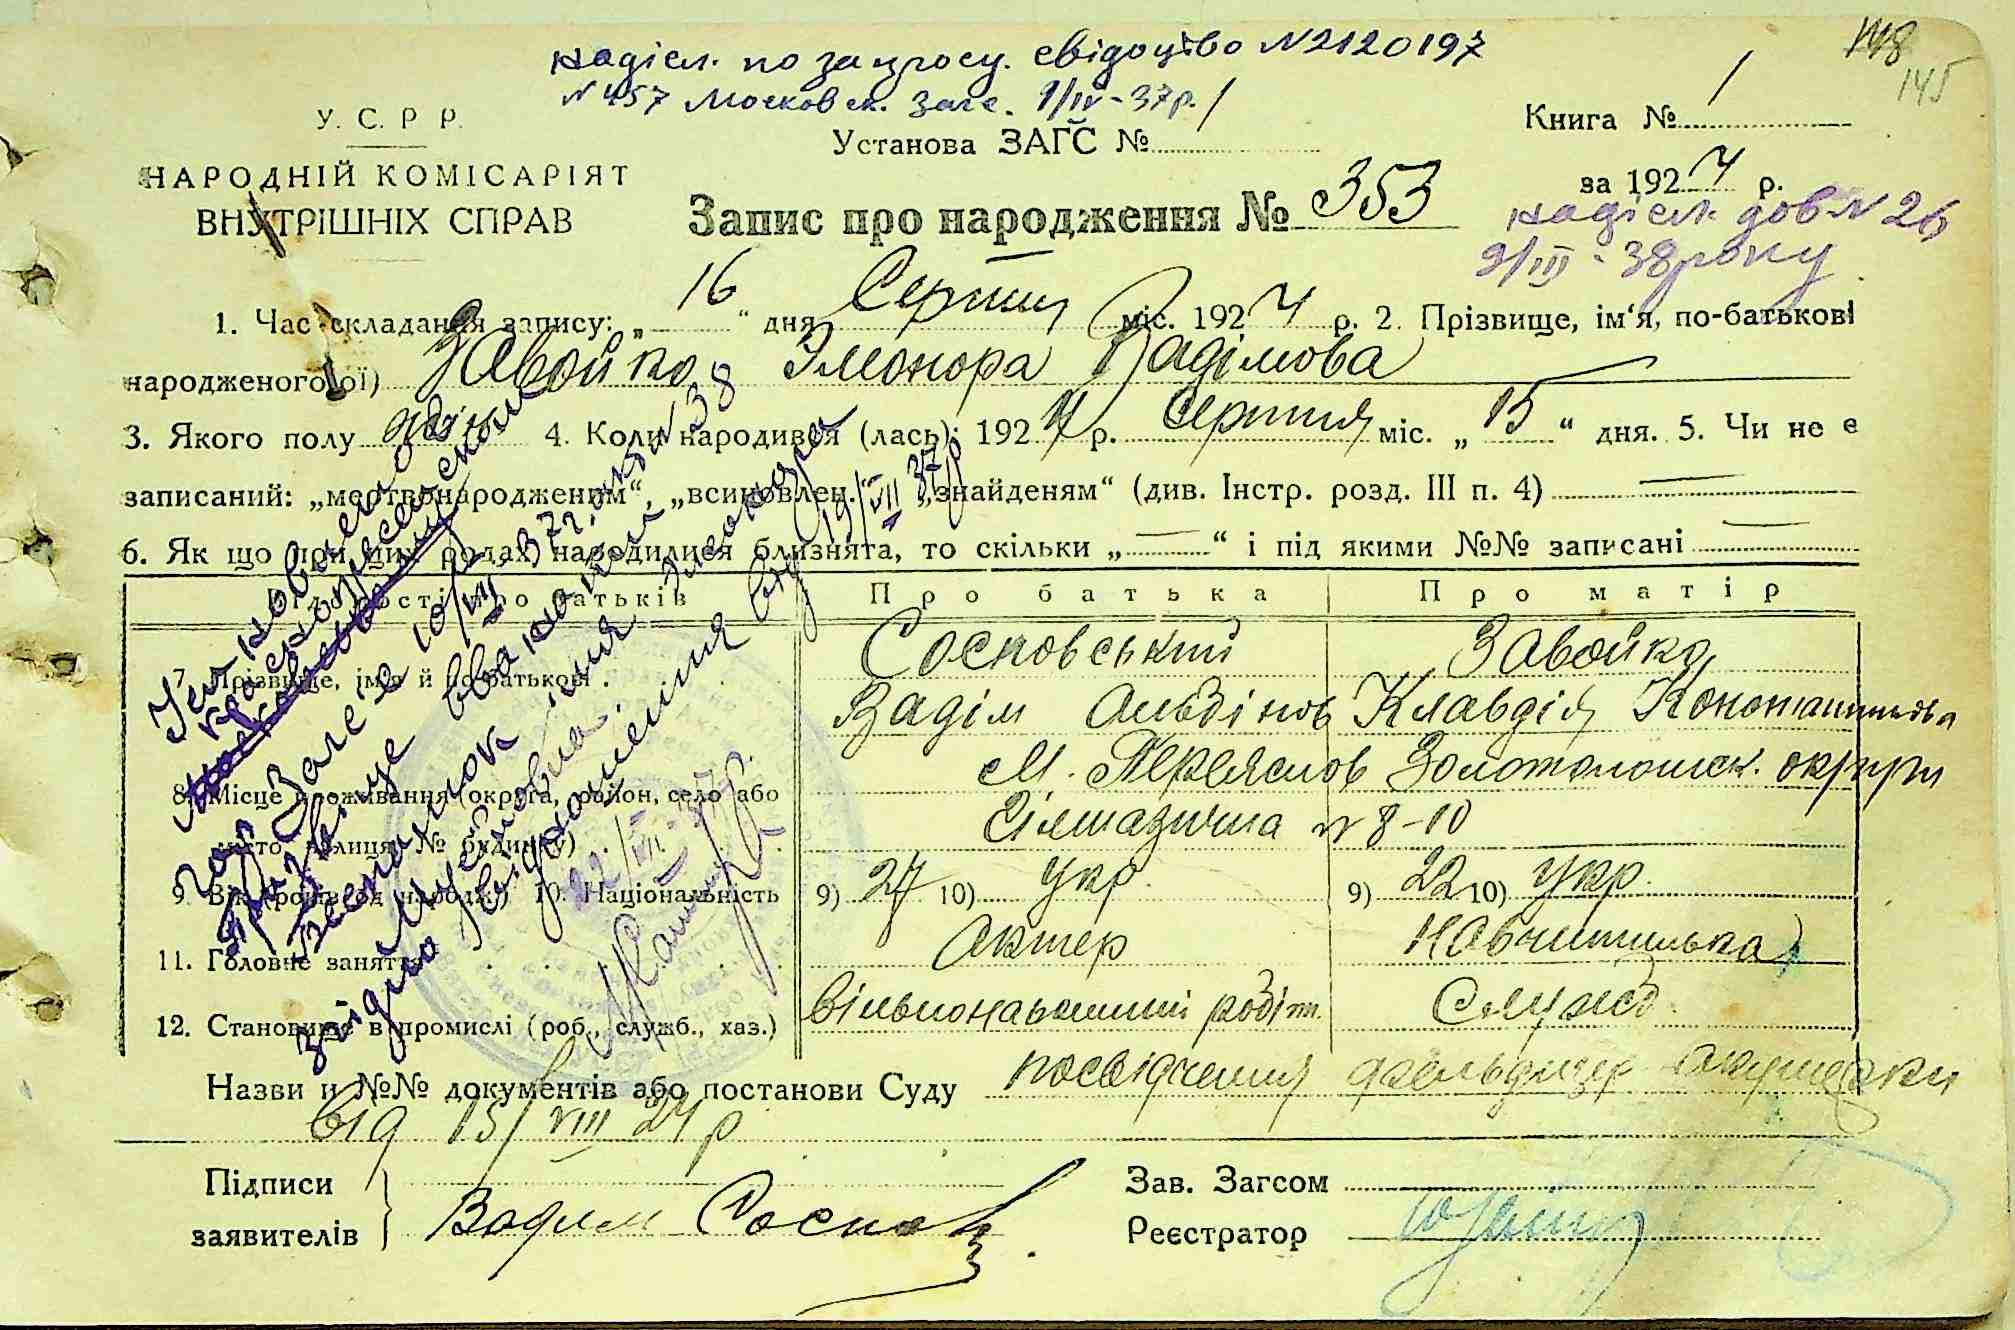 148
145
надісл. по запросу. свідоцтво N 2120197
N 457 Московск. Загс. 1/IV-37р.
У. С. Р. Р.
НАРОДНІЙ КОМІСАРІЯТ
ВНУТРІШНІХ СПРАВ
Установа ЗАГС № 1
Книга № 1
за 1924 р.
надісл. дов N 26
9/III-38 року
Запис про народження № 353
1. Час складання запису: „16“ дня Серпня міс. 1924 р. 2. Прізвище, ім'я, по-батькові
народженого(ої) Завойко Элеонора Вадімова
3. Якого полу жін. 4. Коли народився (лась): 1924 р. Серпня міс. „15“ дня. 5. Чи не є
записаний: „мертвонародженим“, „всиновлен.“ „знайденям“ (див. Інстр. розд. III п. 4) —
6. Як що при цих родах народилися близнята, то скільки „—“ і під якими №№ записані —
Відомості про батьків Про батька Про матір
7. Прізвище, ім'я й по-батькові . Сосновський Завойко
Вадім Клавдія
8. Місце проживання (округа, район, село або М. Переяслов Золотоношск. округи
місто, вулиця, № будинку) N 8-10
9. Вік (рік від народж.) 10. Національність 9) 27 10) Укр. 9) 22 10) Укр.
11. Головне заняття Актер Навчителька
12. Становище в промислі (роб., служб., хаз.) вільнонаьомний робітн. Служб.
Назви и №№ документів або постанови Суду посвідчення фельдшер акушерки
від 15/VIII 24 р
Підписи
заявителів Вадим Соснов
Зав. Загсом
Реєстратор
Усиновлено
Краснопресненским
рай Загсе 10/VII 37 г. акт N 38
Прізвище
звідно
19/VII 37 р
22/VII-37